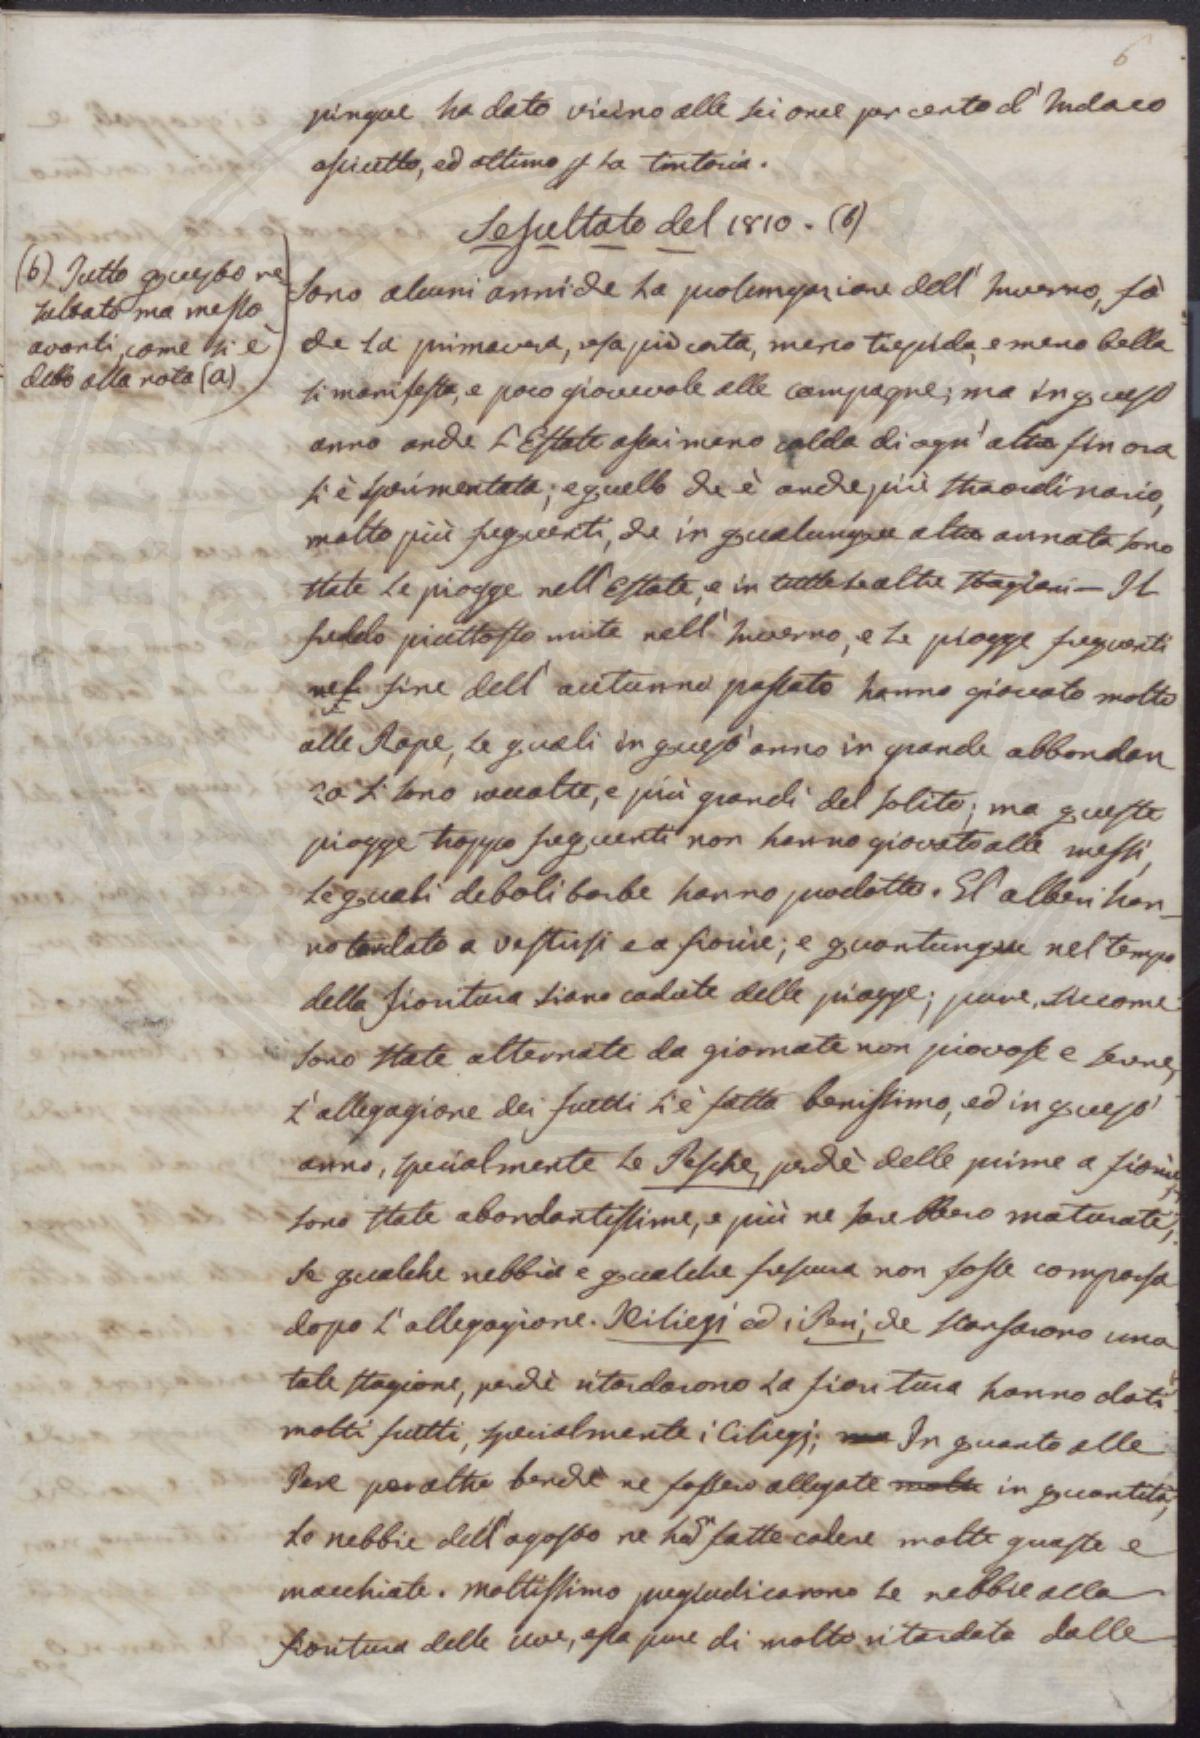 6
pingue ha dato vicino alle sei once per cento d' Indaco
asciutto, ed ottimo p la tintoria.
Resultato del 1810. (b)
(b) Tutto questo re
sultato ma messo
avanti, come si è
detto alla nota (a)
Sono alcuni anni che la prolungazione dell' Inverno, fà
che la primavera, resa più corta, meno tiepida, e meno bella
si manifesta, e poco giovevole alle campagne; ma in quest'
anno anche l'Estate assai meno calda di ogn' altra fin ora
si è sperimentata; e quello che è anche più straordinario,
molto più frequenti, che in qualunque altra annata sono
state le piogge nell' Estate, e in tutte le altre stagioni — Il
freddo piuttosto mite nell' Inverno, e le piogge frequenti
nel fine dell' autunno passato hanno giovato molto
alle Rape, le quali in quest' anno in grande abbondan
za si sono raccolte, e più grandi del solito; ma queste
piogge troppo frequenti non hanno giovato alle messi,
le quali deboli barbe hanno prodotto. Gl' alberi han-
no tardato a vestirsi e a fiorire; e quantunque nel tempo
della fioritura siano cadute delle piogge; pure, siccome
sono state alternate da giornate non piovose e serene,
l'allegagione dei frutti si è fatta benissimo, ed in quest'
anno, specialmente le Pesche, perchè delle prime a fiorire,
sono state abondantissime, e più ne sarebbero maturate,
se qualche nebbia e qualche frescura non fosse comparsa
dopo l'allegagione. I Ciliegi ed i Peri, che scansarono una
tale stagione, perchè ritardarono la fioritura hanno dati
molti frutti, specialmente i Ciliegj; ma In quanto alle
Pere per altro benchè ne fossero allegate molte in quantità,
le nebbie dell' agosto ne han fatte cadere molte guaste e
macchiate. Moltissimo pregiudicarono le nebbie alla
fioritura delle uve, essa pure di molto ritardata dalle